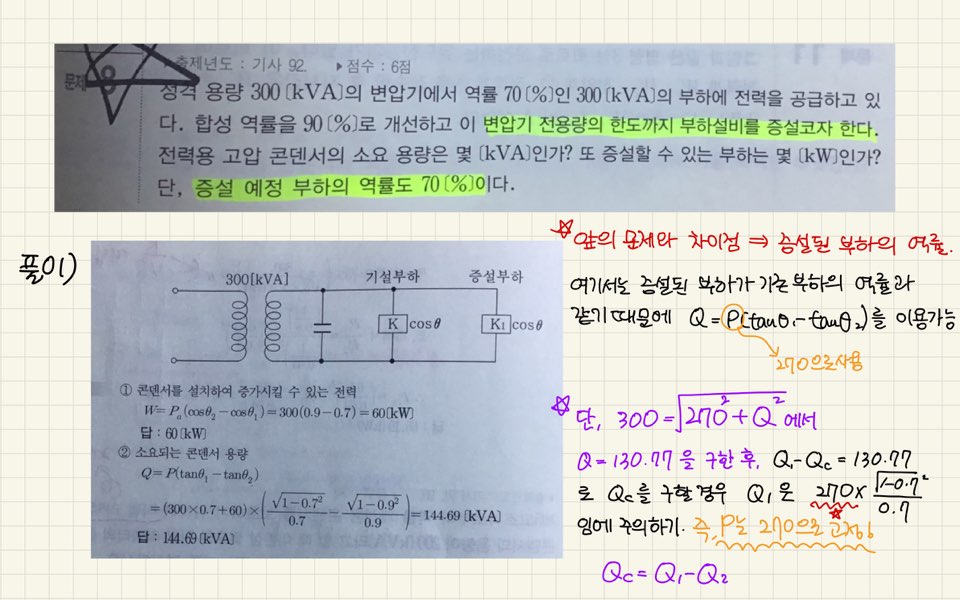 문제
출제년도 : 기사 92. ▶점수 : 6점
정격 용량 300〔kVA〕의 변압기에서 역률 70〔%〕인 300〔kVA〕의 부하에 전력을 공급하고 있
다. 합성 역률을 90〔%〕로 개선하고 이 변압기 전용량의 한도까지 부하설비를 증설코자 한다.
전력용 고압 콘덴서의 소요 용량은 몇〔kVA〕인가? 또 증설할 수 있는 부하는 몇〔kW〕인가?
단, 증설 예정 부하의 역률도 70〔%〕이다.
풀이)
300[kVA] 기설부하 증설부하
K cosθ K₁ cosθ
① 콘덴서를 설치하여 증가시킬 수 있는 전력
W=Pₐ(cosθ₂-cosθ₁)=300(0.9-0.7)=60〔kW〕
답 : 60〔kW〕
② 소요되는 콘덴서 용량
Q=P(tanθ₁-tanθ₂)
=(300×0.7+60)×(√1-0.7²/0.7 - √1-0.9²/0.9)=144.69〔kVA〕
답 : 144.69〔kVA〕
☆앞의 문제와 차이점 ⇒ 증설된 부하의 역률.
여기서는 증설된 부하가 기존 부하의 역률과
같기 때문에 Q=P(tanθ₁-tanθ₂)를 이용가능
270으로 사용
☆단, 300=√270²+Q² 에서
Q=130.77을 구한 후, Q₁-Qc=130.77
로 Qc를 구할 경우 Q₁은 270×√1-0.7²/0.7
임에 주의하기. 즉, P는 270으로 고정!
Qc=Q₁-Q₂